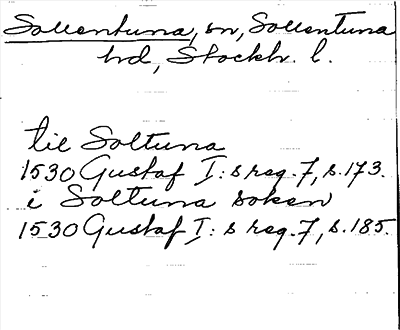 Sollentuna, sn, Sollentuna
hd, Stockh. l.
till Soltuna
1530 Gustaf I:s reg. 7, s. 173.
i Soltuna soken
1530 Gustaf I:s reg. 7, s. 185.